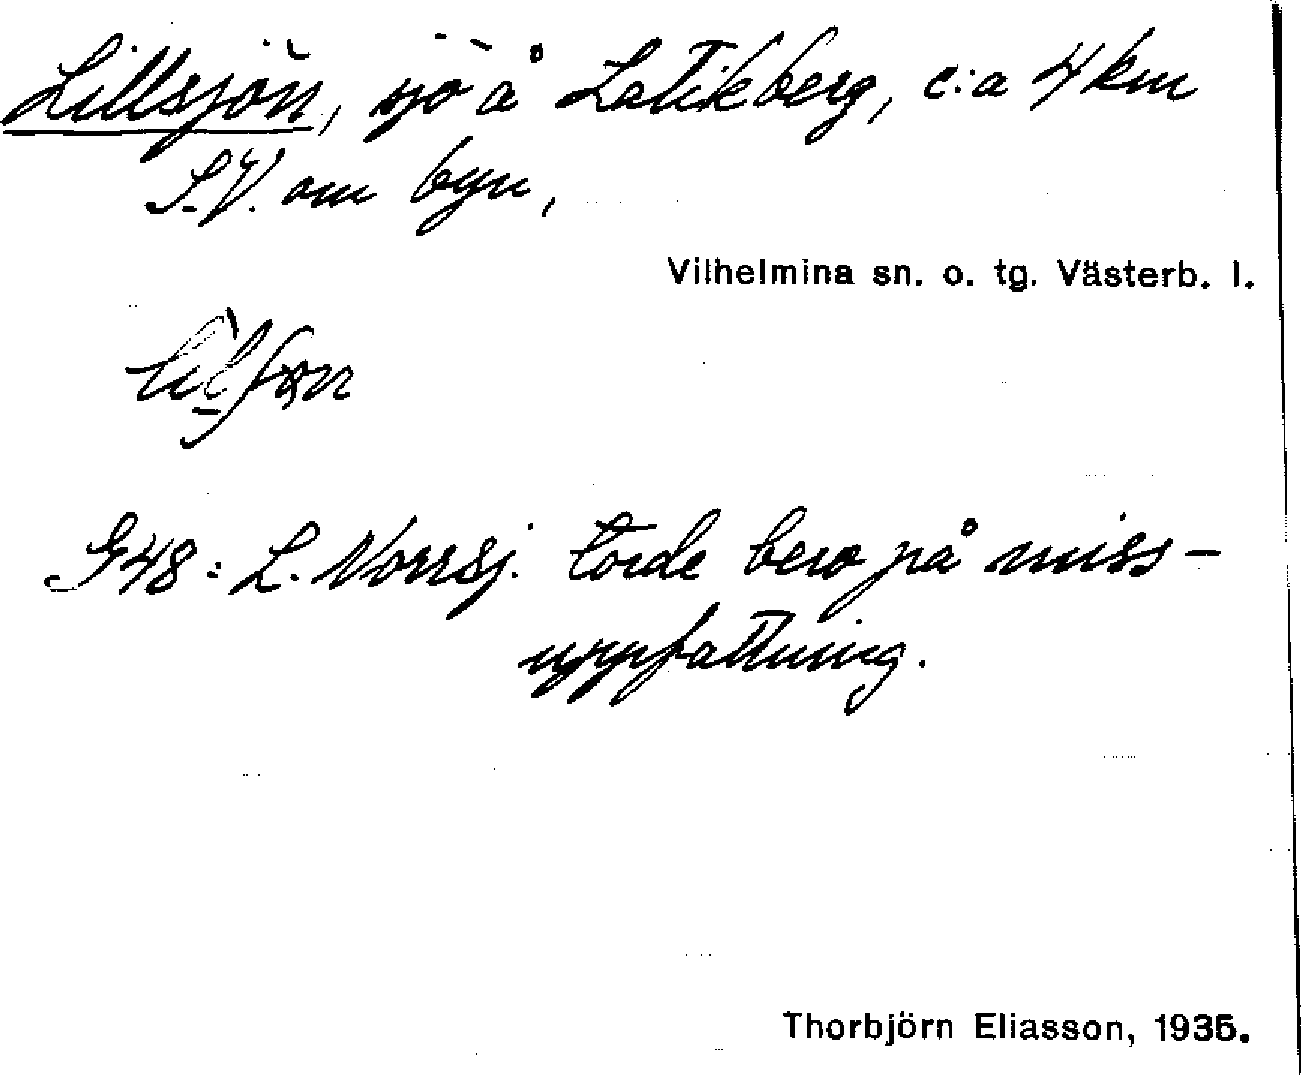 Lillsjön, sjö å Latikberg, c:a 4 km
S.V. om byn,
Vilhelmina sn. o. tg. Västerb. l.
G48: L. Norrsj. torde bero på miss-
uppfattning.
Thorbjörn Eliasson, 1935.